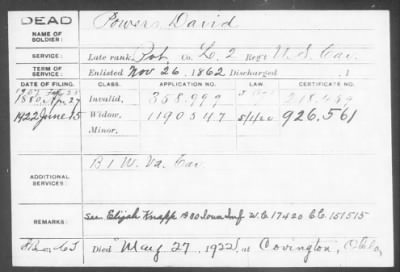 DEAD
NAME OF SOLDIER:
Powers, David
SERVICE:
Late rank, Pvt Co. L, 2 Reg't U.S. Cav.
TERM OF SERVICE:
Enlisted Nov 26, 1862 Discharged , 1
DATE OF FILING. CLASS. APPLICATION NO. LAW. CERTIFICATE NO.
1880, Apr 27 Invalid, 358.999
1922 June 15 Widow, 1190547 5/1/20 926.561
Minor,
ADDITIONAL SERVICES:
B 1 W. Va. Cav
REMARKS:
see Elijah Knapp W.C. 17420 151515
Died May 27, 1922, at Covington,